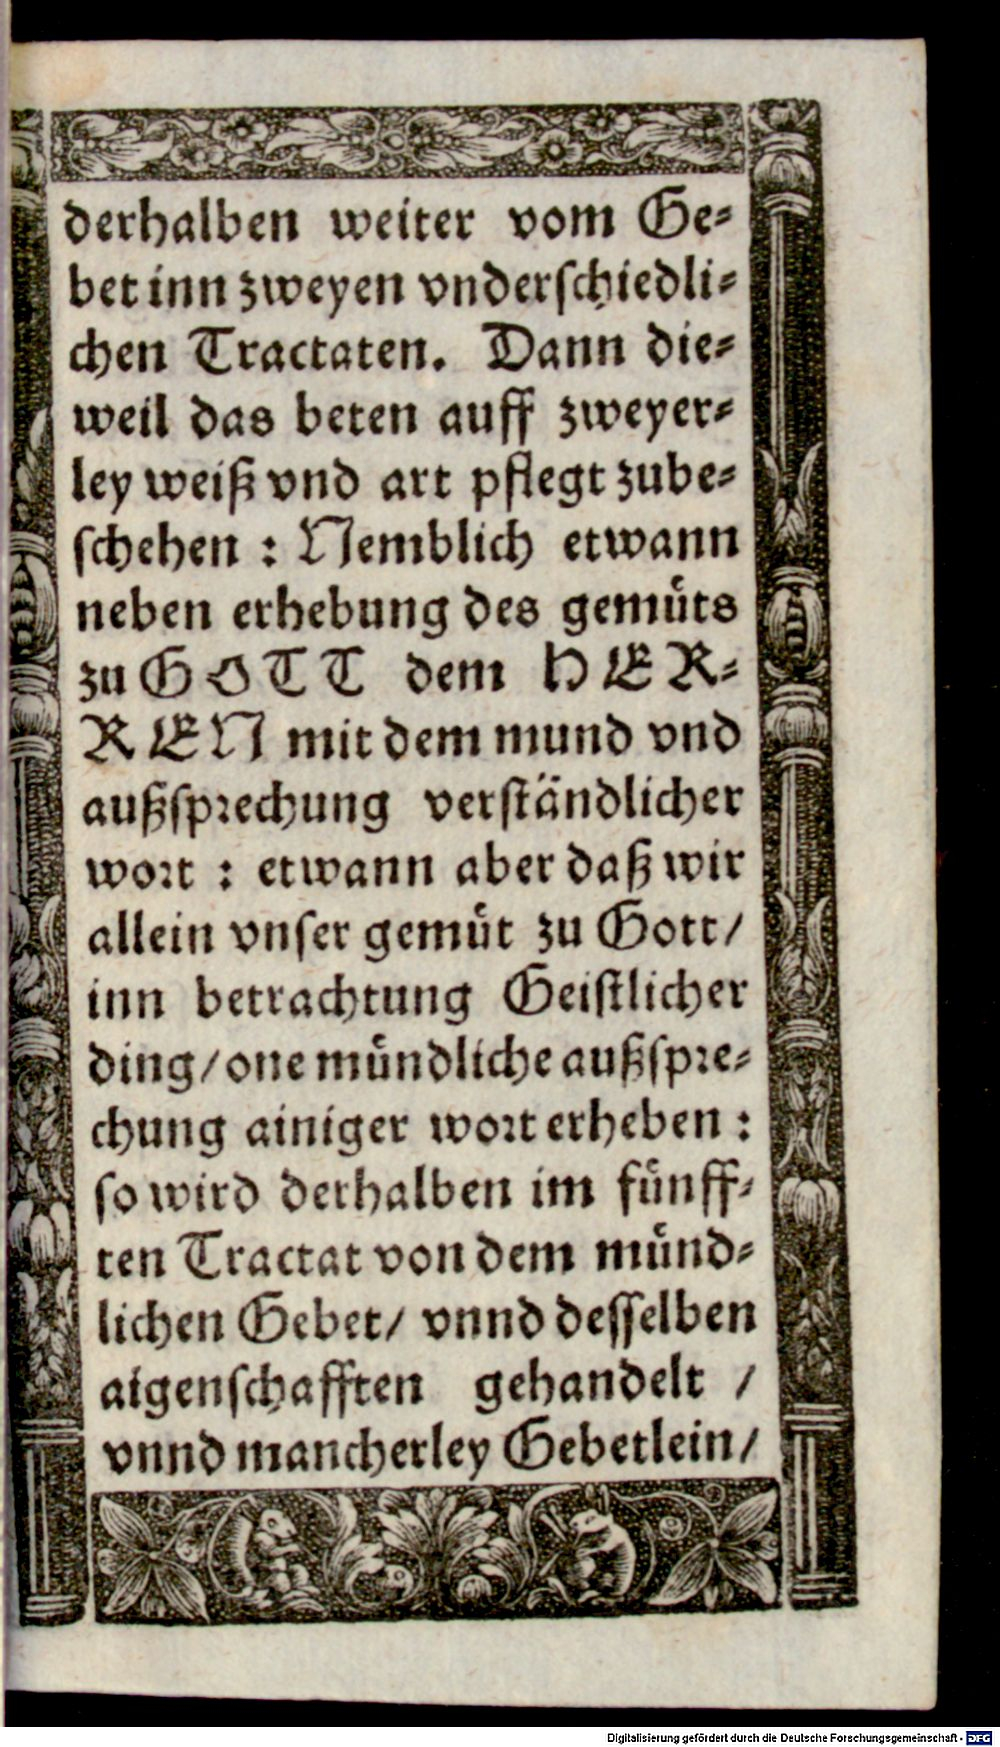 derhalben weiter vom Ge⸗
bet inn zweyen vnderſchiedli⸗
chen Tractaten. Dann die⸗
weil das beten auff zweyer⸗
ley weiß vnd art pflegt zube⸗
ſchehen : Nemblich etwann
neben erhebung des gemuͤts
zu GOTT dem HER⸗
REN mit dem mund vnd
außſprechung verſtändlicher
wort : etwann aber daß wir
allein vnſer gemuͤt zu Gott/
inn betrachtung Geiſtlicher
ding/ one muͤndliche außſpre⸗
chung ainiger wort erheben :
ſo wird derhalben im fuͤnff⸗
ten Tractat von dem muͤnd⸗
lichen Gebet/ vnnd deſſelben
aigenſchafften gehandelt /
vnnd mancherley Gebetlein/
Digitalisierung gefördert durch die Deutsche Forschungsgemeinschaft - DFG